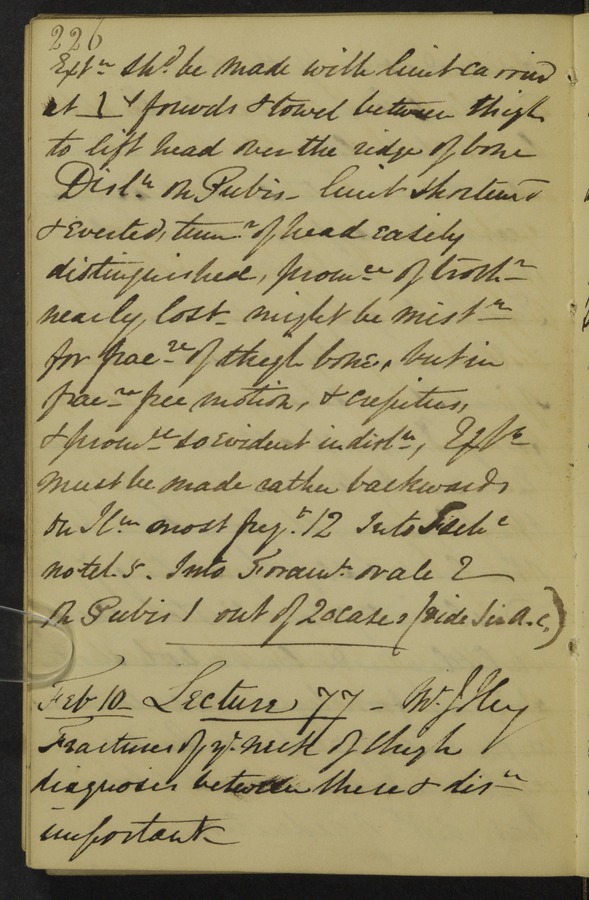 226
Extn shd be made with limb carried
at forwds & towel between thigh
to lift head over the ridge of bone
Disln on Pubis - limb shortend
& everted, tumr of head easily
distinguished, promce of trochr
nearly lost - might be mistn
for fracre of thigh bone, but in
fracre free motion, & crepitus,
& promce so evident in disln, Extn
must be made rather backwards
on Ilm most freqt 12 Into Ischc
notch 5. Into Foramn ovale 2
on Pubis 1 out of 20 cases (vide Sir A. C.)
Feb 10 Lecture 77 - Mr J Hey
Fractures of ye neck of thigh
diagnosis between these & disn
important